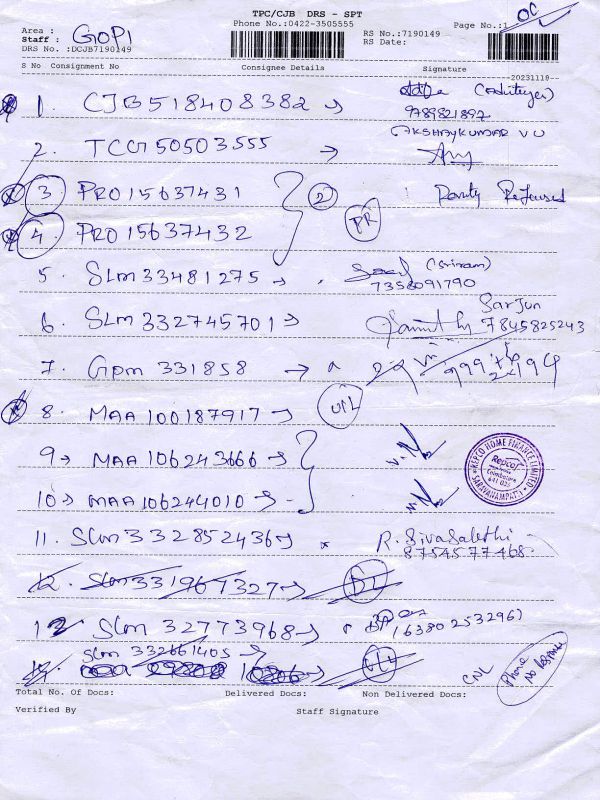 TPC/CJB DRS - SPT
Phone No.:0422-3505555
Page No.:1
Area :
Staff : GOPI
DRS No. :DCJB7190149
RS No.:7190149
RS Date:
S No Consignment No Consignee Details Signature
20231118
1. CJB518408382
9789821897
2. TCG750503555 AKSHAYKUMAR V U
3 PRO15637431 2 : Party Refused
4. PRO15637432 PR
5. SLM33481275 (Sriram)
7358091790
6. SLM332745701 Sarjun
7845825243
7. Gpm 331858
8. MAA 100187917
9 MAA 106243666
10 MAA106244010
REPCO HOME FINANCE LIMITED
Repco
Coimbatore
641 035
SARAVANAMPATTI
11. SLM332852436 R. Sivasakthi
8754577468
12. SLM331967327 DL
13 SLM 32773968 (6380253296)
14. SLM 332661405
CNL
Phone No
Total No. Of Docs: Delivered Docs: Non Delivered Docs:
Verified By Staff Signature